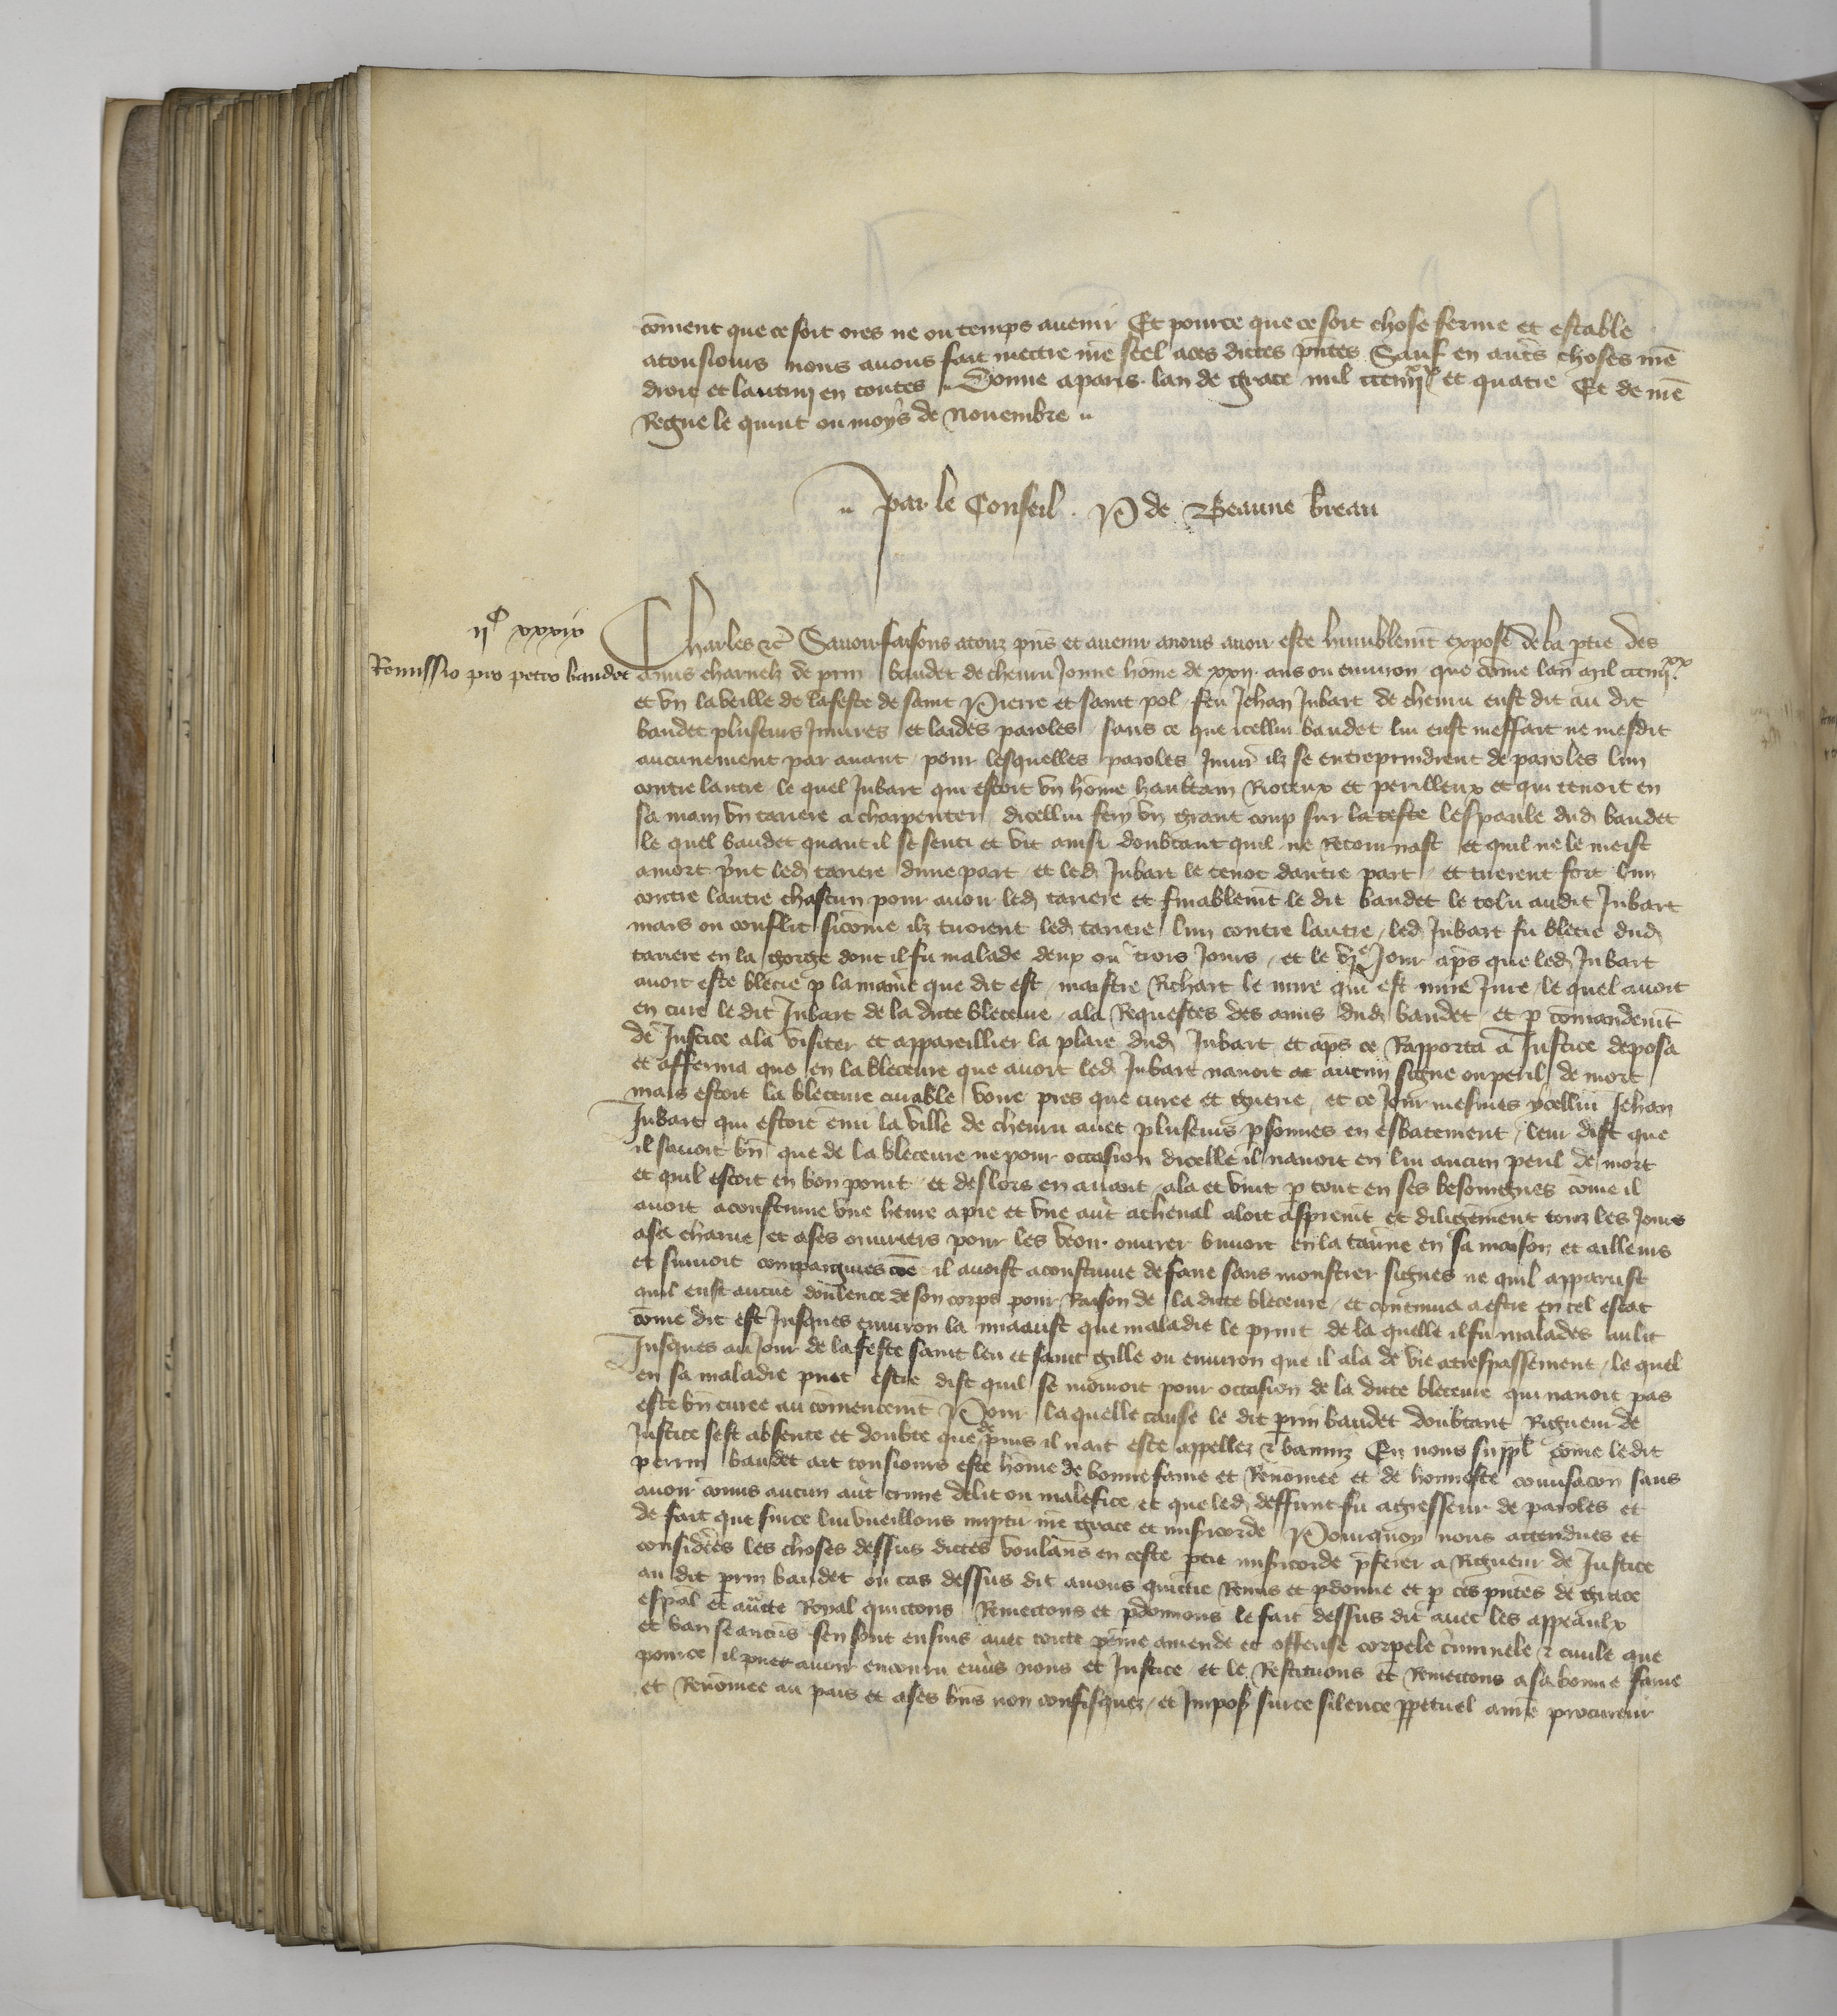 cōment que ce soit ores ne ou temps auenir Et pource que ce soit chose ferme et estable
atousiours nous auons fait mectre nr̄e seel a ces dictes p̄ntes Sauf en aut̄s choses nr̄e
droit et lautruy en toutes Donne a paris lan de grace mil ccciiijxx et quatre Et de nr̄e
Regne le quint ou moys de Nouembre
par le Conseil . P de Beaune breau
ijc xxxix
Remissio pro petro baudet
Charles etc̄ Sauoir faisons atouz p̄ns et auenir a nous auoir este humblemēt expose de la p̄tie des
amis charnelz de p̄rin baudet de cheuru Jonne hōme de xxij ans ou enuiron que cōme lan mil ccciiijxx
et vn la veille de la feste de saint Pierre et saint pol feu Jehan Jubart de cheuru eust dit au dit
baudet plusieurs Iniures et laides paroles sans ce que icellui baudet lui eust meffait ne mesdit
aucunement par auant pour lesquelles paroles Iniur̄ ilz se entreprindrent de paroles lun
contre lautre le quel Jubart qui estoit vn hōme haultain Rioteux et perilleux et qui tenoit en
sa main vn tariere a charpenter dicellui feri vn grant coup sur la teste lespaule dud baudet
le quel baudet quant il se senti et vit ainsi doubtant quil ne Retournast et quil ne le meist
amort p̄nt led tariere dune part et led Jubart le tenoit dautre part et tirerent fort lun
contre lautre chascun pour auoir led tariere et finablemēt le dit baudet le tolu audit Jubart
mais ou conflit sicōme ilz tiroient led tariere lun contre lautre led Jubart fu blecie dud
tariere en la gorge dont il fu malade deux ou trois Jours et le vje Jour ap̄s que led Jubart
auoit este blecie p la manie᷑ que dit est maistre Richart le mire qui est mire Jure le quel auoit
en cure le dit Jubart de la dicte bleceure ala Requestes des amis dud baudet et p cōmandemēt
de Justice ala visiter et appareillier la plaie dud Jubart et ap̄s ce Rapporta a Justice deposa
et afferma que en la bleceure que auoit led Jubart nauoit aucun signe ou peril de mort
mais estoit la bleceure curable voire pres que curee et guerie et ce Jour mesmes ycellui Jehan
Jubart qui estoit emi la ville de cheuru auec plusieurs p̄sonnes en esbatement leur dist que
il sauoit bn̄ que de la bleceure ne pour occasion dicelle il nauoit en lui aucun peril de mort
et quil estoit en bon point et deslors en auant ala et vint p tout en ses besoingnes cōme il
auoit acoustume vne heure a pie et vne aut̄ acheual aloit asprem̄t et diligēment touz les Jours
asa charue et ases ouuriers pour les veoir ouurer buuoit en la tau̯ne en sa maison et ailleurs
et suiuoit compaignies cōe il auoit acoustume de faire sans monstrer signes ne quil apparust
quil eust aucūe doulence de son corps pour Raison de la dicte bleceure et continua aestre en tel estat
cōme dit est Jusques enuiron la miaoust que maladie le print de la quelle il fu malades au lit
Jusques au Jour de la feste saint leu et saint gille ou enuiron que il ala de vie a trespassement le quel
en sa maladie peut estre dist quil se mouroit pour occasion de la dicte bleceure qui nauoit pas
este bn̄ curee au cōmencemēt Pour laquelle cause le dit p̄rin baudet doubtant Rigueur de
Justice sest absente et doubte que depuis il nait este appellez et banniz En nous suppl cōme le dit
perrin baudet ait tousiours este hōme de bonne fame et Renōmee et de honneste conu̯sacōn sans
auoir cōmis aucun aut̄ crime delit ou malefice et que led deffunt fu agresseur de paroles et
de fait que surce lui vueillons imp̄tir nr̄e grace et mis̄icorde Pourquoy nous attendues et
considerees les choses dessus dictes voulans en ceste p̄tie mis̄icorde p̄ferer a Rigueur de Justice
au dit p̄rin baudet ou cas dessus dit auons quictie Remis et p̄donne et p ces p̄ntes de grace
esp̄al et auc̄te Royal quictons Remectons et p̄donnons le fait dessus dit auec les appeaulx
et ban se aucūs sen sont ensuis auec toute peine amende et offense corpele c̄minele et ciuile que
pource il puet auoir encouru enu̯s nous et Justice et le Restituons et Remectons a sa bonne fame
et Renōmee au pais et ases bn̄s non confisquez et Impos̄ surce silence p̄petuel a nr̄e procureur